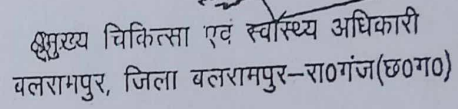 मुख्य चिकित्सा एवं स्वास्थ्य अधिकारी
बलरामपुर, जिला बलरामपुर-रा0गंज(छ0ग0)